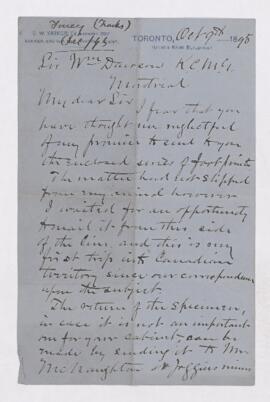 Torrey (Charles)
TORONTO, Oct 9th 1895
Sir Wm Dawson K.C.M.G.
Montreal
My dear Sir
I fear that you
have thought me neglectful
of my promise to send to you
the enclosed series of foot prints
The matter had not slipped
from my mind however
I waited for an opportunity
to mail it from this side
of the line, and this is my
first trip into Canadian
territory since our correspondence
upon the subject
The return of the specimen,
in case it is not an important
on for your cabinet, can be
made by sending it to Mr
McNaughton at Joggins mines